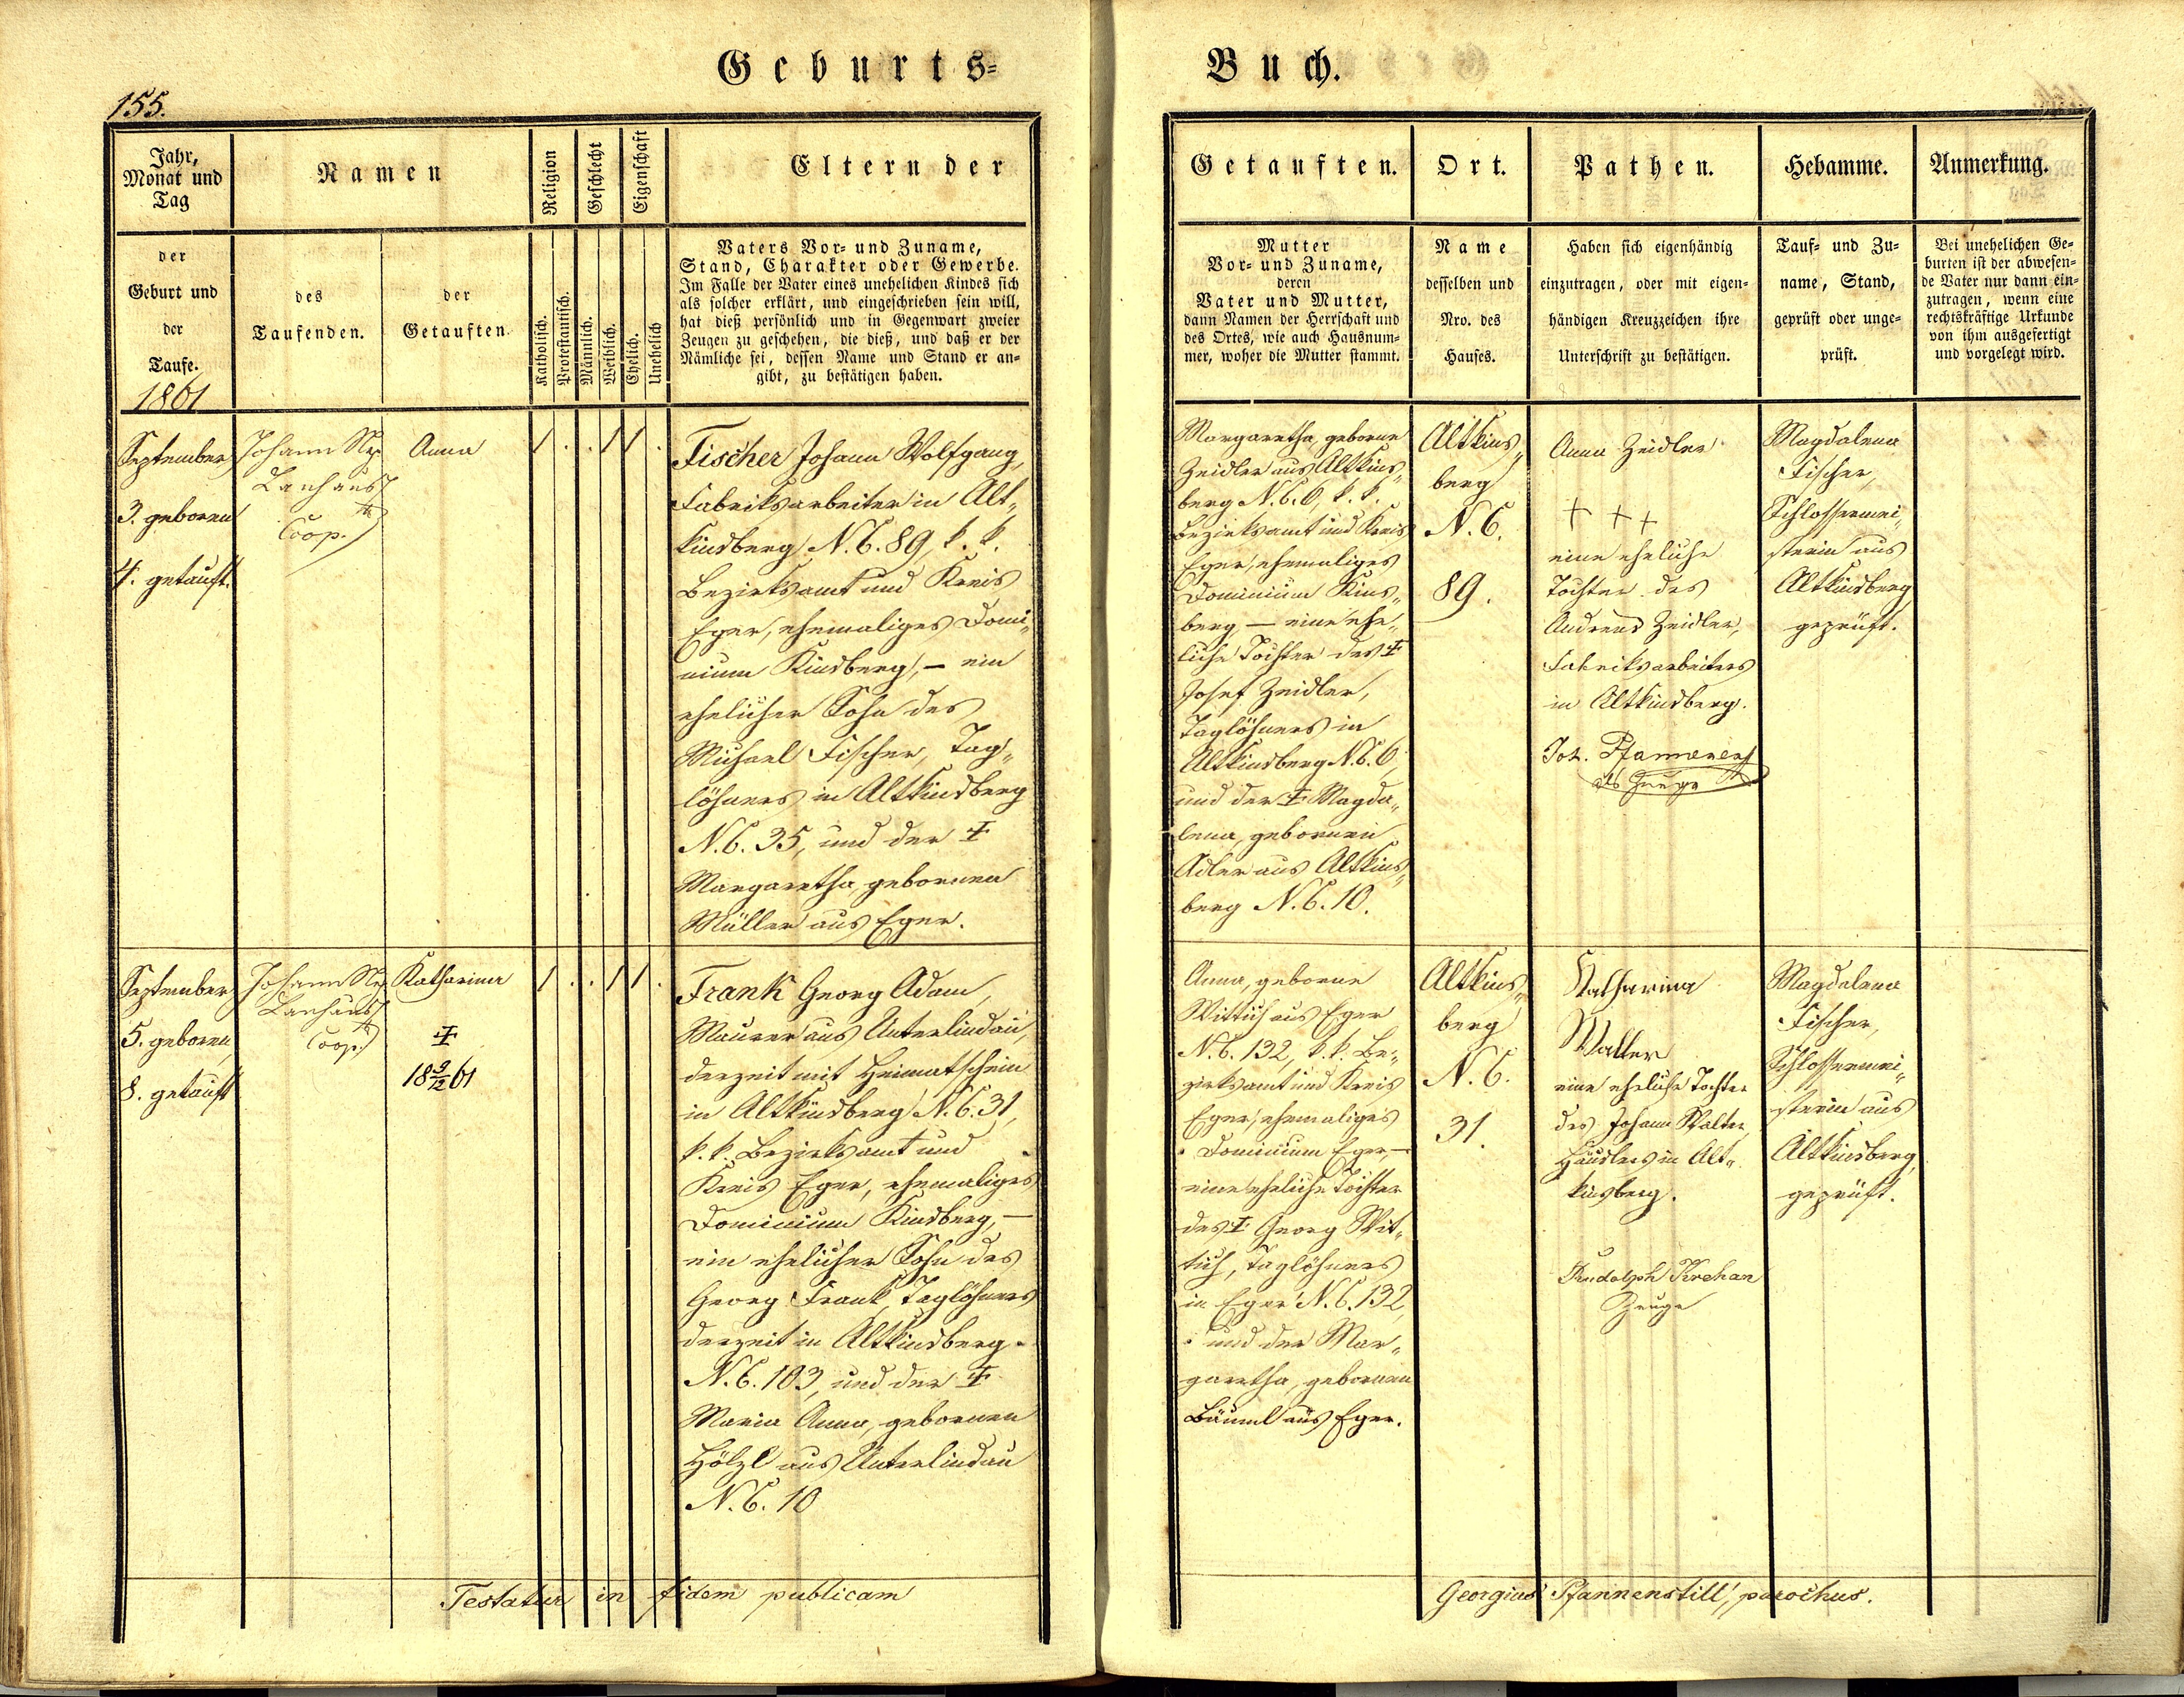 Geburts=
Buch.
155.
Jahr,
Monat und
Tag
Namen
Religion
Geschlecht
Eigenschaft
Eltern der
der
Geburt und
der
Taufe.
1861
des
Taufenden.
der
Getauften
Katholisch.
Protestantisch.
Männlich.
Weiblich.
Ehelich.
Unehelich
Vaters Vor- und Zuname,
Stand, Charakter oder Gewerbe.
Im Falle der Vater eines unehelichen Kindes sich
als solcher erklärt, und eingeschrieben sein will,
hat dieß persönlich und in Gegenwart zweier
Zeugen zu geschehen, die dieß, und daß er der
Nämliche sei, dessen Name und Stand er an-
gibt, zu bestätigen haben.
September
3. geboren
4. getauft.
Johann Nep.
Coop.
Anna
1 . . 1 1 .
Fischer Johann Wolfgang,
Fabriksarbeiter in Alt„
kinsberg N.C. 89, k. k.
Bezirksamt und Kreis
Eger, ehemaliges Domi„
nium Kinsberg, – ein
ehelicher Sohn des
Michael Fischer, Tag„
löhners in Altkinsberg
N.C. 35, und der ‡
Margaretha, gebornen
Müller aus Eger.
September
5. geboren
8. getauft
Johann Nep.
Coop.
Katharina
‡
18 9/12 61
1 . . 1 1 .
Frank Georg Adam,
Maurer aus Unterlindau,
derzeit mit Heimatschein
in Altkinsberg N.C. 31,
k. k. Bezirksamt und
Kreis Eger, ehemaliges
Dominium Kinsberg, –
ein ehelicher Sohn des
Georg Frank, Taglöhners
derzeit in Altkinsberg
N.C. 103, und der ‡
Maria Anna, gebornen
Hölzl aus Unterlindau
N.C. 10
Testatur in fidem publicam
Getauften.
Ort.
Pathen.
Hebamme.
Anmerkung.
Mutter
Vor- und Zuname,
deren
Vater und Mutter,
dann Namen der Herrschaft und
des Ortes, wie auch Hausnum-
mer, woher die Mutter stammt.
Name
desselben und
Nro. des
Hauses.
Haben sich eigenhändig
einzutragen, oder mit eigen-
händigen Kreuzzeichen ihre
Unterschrift zu bestätigen.
Tauf- und Zu-
name, Stand,
geprüft oder unge-
prüft.
Bei unehelichen Ge-
burten ist der abwesen-
de Vater nur dann ein-
zutragen, wenn eine
rechtskräftige Urkunde
von ihm ausgefertigt
und vorgelegt wird.
Margaretha, geborne
Zeidler aus Altkins„
berg N.C. 6, k. k.
Bezirksamt und Kreis
Eger, ehemaliges
Dominium Kins„
berg, – eine ehe„
liche Tochter des ‡
Josef Zeidler,
Taglöhners in
Altkinsberg N.C. 6,
und der ‡ Magda„
lena, gebornen
Adler aus Altkins„
berg N.C. 10.
Altkins„
berg
N.C.
89.
Anna Zeidler
+ + +
eine eheliche
Tochter des
Andreas Zeidler,
Fabriksarbeiters
in Altkinsberg.
Joh.
als Zeuge
Magdalena
Fischer,
Schlossermei„
sterin aus
Altkinsberg,
geprüft.
Anna, geborne
Wittich aus Eger
N.C. 132, k.k. Be„
zirksamt und Kreis
Eger, ehemaliges
Dominium Eger, –
eine eheliche Tochter
des ‡ Georg Wit„
tich, Taglöhners
in Eger N.C. 132,
und der Mar„
garetha, gebornen
Bäuml aus Eger.
Altkins„
berg
N.C.
31.
Katharina
Walter
eine eheliche Tochter
des Johann Walter,
Häuslers in Alt„
kinsberg.
Rudolph Krehan
Zeuge
Magdalena
Fischer,
Schlossermei„
sterin aus
Altkinsberg,
geprüft.
Georgius Pfannenstill, parochus.